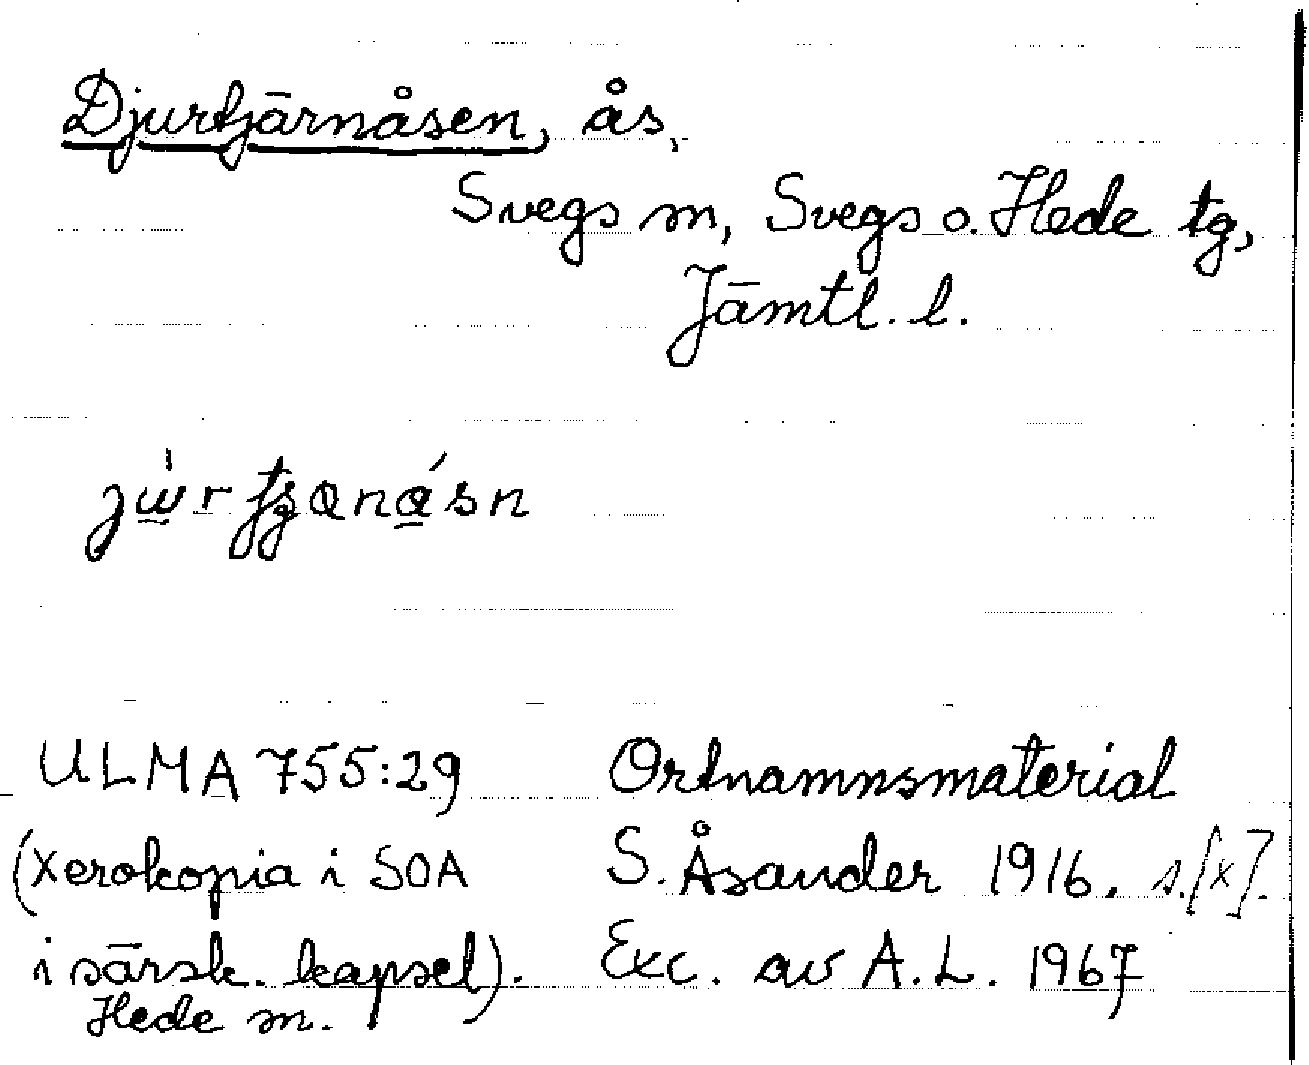 Djurtjärnåsen, ås,
Svegs m, Svegs o. Hede tg,
Jämtl. l.
ULMA 755:29 Ortnamnsmaterial
(xerokopia i SOA S. Åsander 1916. s. [x].
i särsk. kapsel). Exc. av A.L. 1967
Hede m.